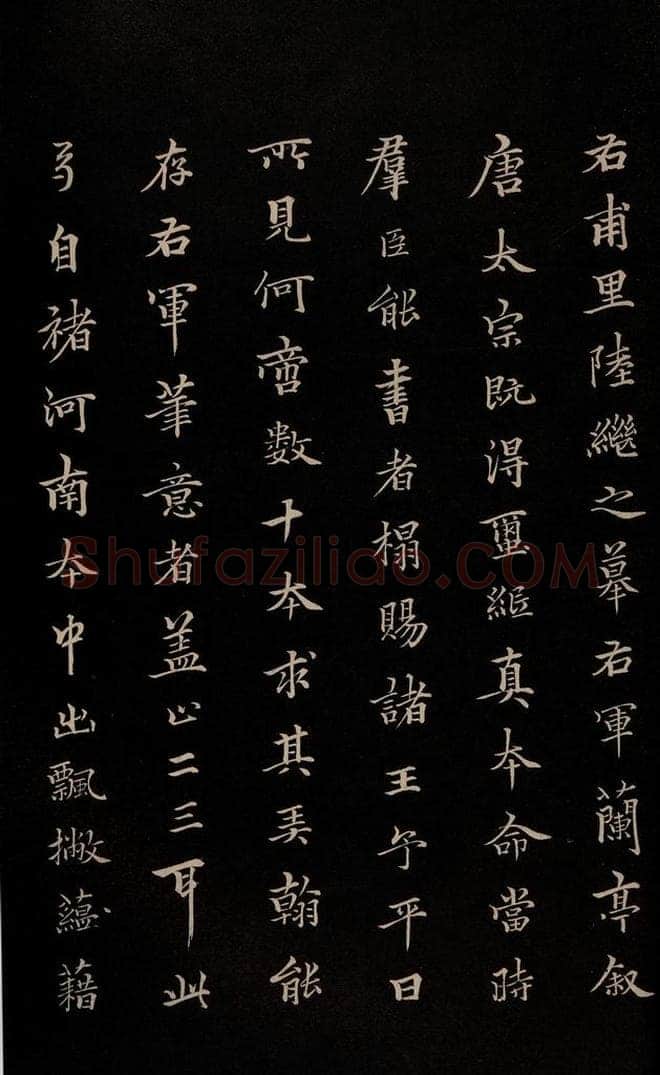 右甫里陸繼之摹右軍蘭亭叙
唐太宗既得璽紙真本命當時
羣臣能書者搨賜諸王予平日
所見何啻數十本求其弄翰能
存右軍筆意者盖止二三耳此
卷自褚河南本中出飄撇蘊藉
Shufaziliao.COM